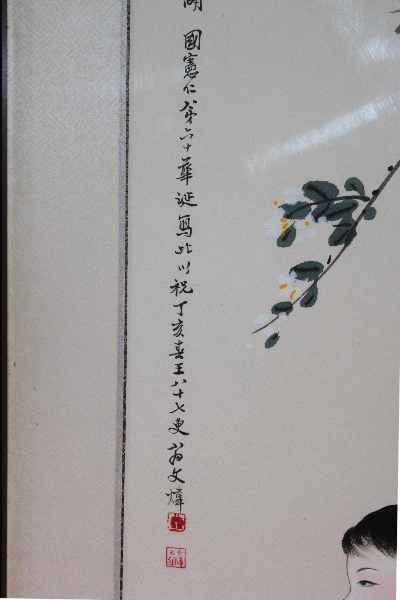 國憲仁弟六十華誕寫此以祝丁亥春王八十七叟翁文煒